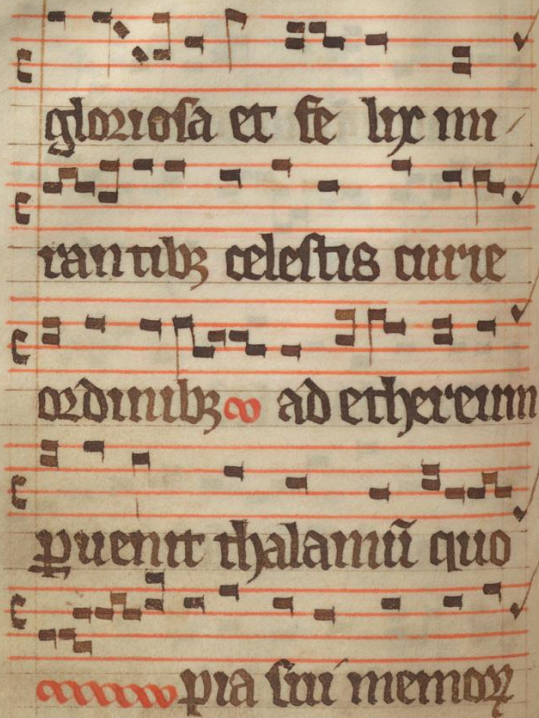 gloriosa et fe lix mi
rantibꝫ celestis curie
ordinibꝫ ad ethereum
ꝑuenit thalamū quo
pia sui memoꝝ